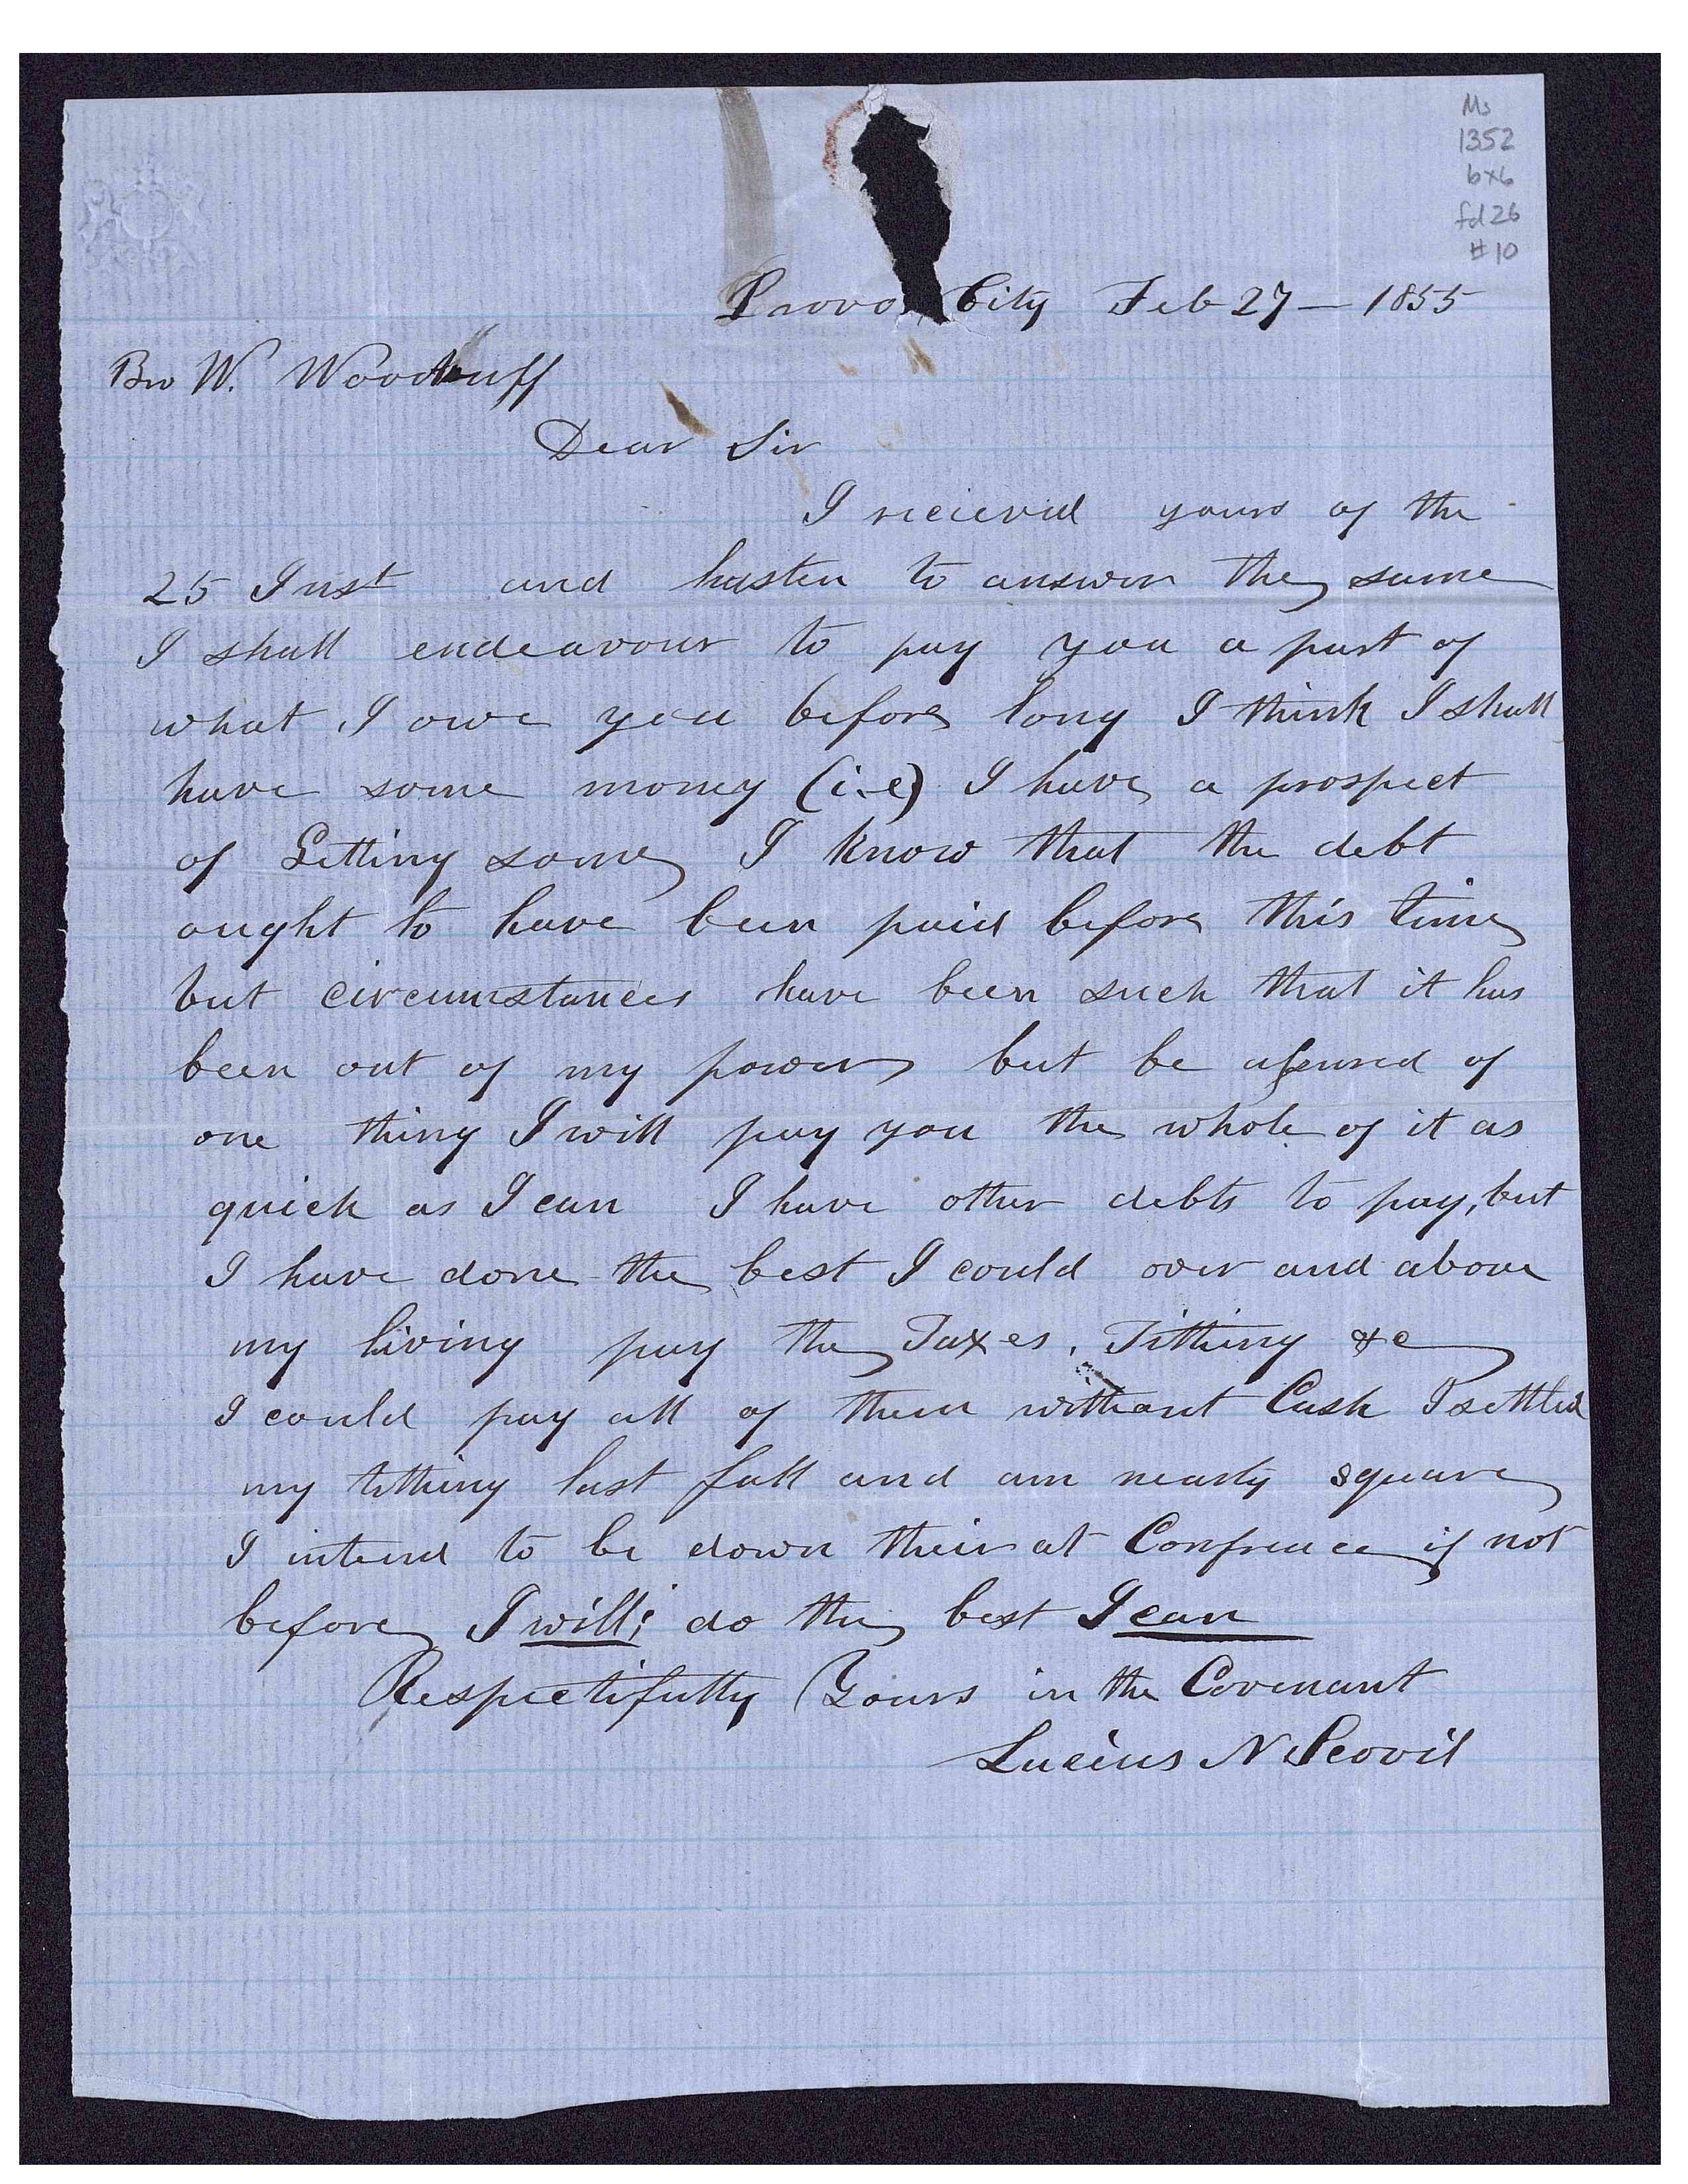 Ms
1352
bx6
fd 26
#10
Provo City Feb 27 — 1855
Bro W. Woodruff
Dear Sir
I recieved yours of the
25 Inst and hasten to answer the same
I shall endeavour to pay you a part of
what I owe you before long I think I shall
have some money (i.e) I have a prospect
of Getting some I know that the debt
ought to have been paid before this time
but circumstances have been such that it has
been out of my power but be assured of
one thing I will pay you the whole of it as
quick as I can I have other debts to pay, but
I have done the best I could over and above
my living pay the Taxes, Tithing &c
I could pay all of them without Cash I settled
my tithing last fall and am nearly square
I intend to be down their at Confrence if not
before I will; do the best I can
Respectifully Yours in the Covenant
Lucius N Scovil